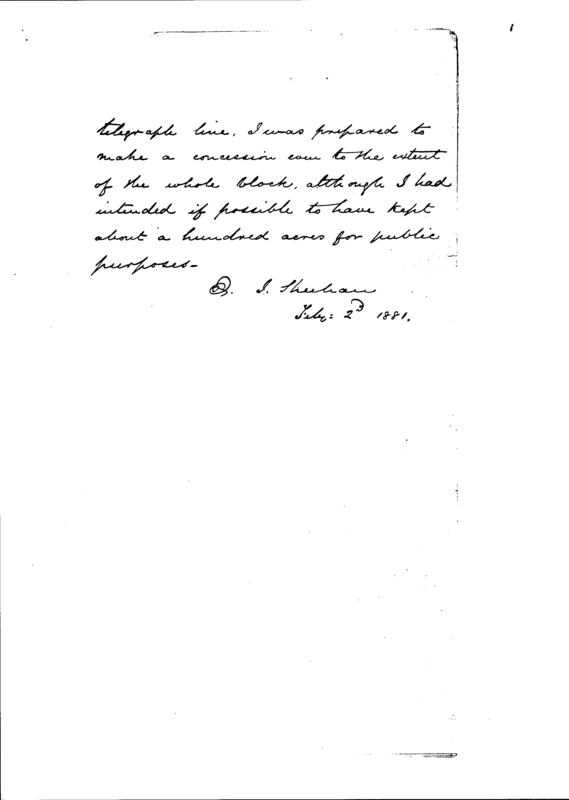 1
telegraph line. I was prepared to
make a concession even to the extent
of the whole block, although I had
intended if possible to have kept
about a hundred acres for public
purposes—
J. Sheehan
Feby: 2d 1881.